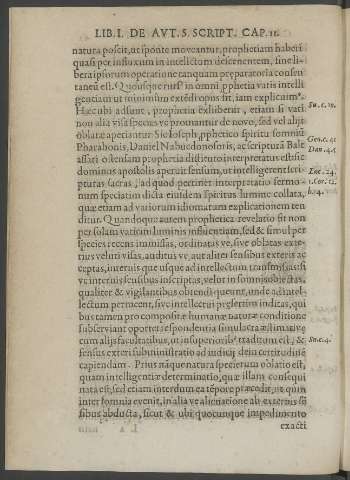 LIB. I. DE AVT. S. SCRIPT. CAP. 11.
natura poscit, ut sponte moveantur, prophetiam haberi
quasi per influxum in intellectum deicerentem, sine li-
bera ipsorum operatione tanquam præparatoria
taneũ est. Quousque in omni prophetia vatis intelli
gentiam ut minimum expediri opus sit, iam explicuim⁹.
Hæc ubi adsunt, prophetia exhibetur, etiam si vati
non alia visa species ve promatur de novo, sed vel aliis
oblatæ aperiantur. Sic Ioseph, prophetico spiritu somniũ
Pharahonis, Daniel Nabucdonosoris, ac scripturã Balt
assari ostensam prophetia distincto interpretatus est: sic
dominus apostolis aperuit sensum, ut intelligerent scri-
pturas sacras, ad quod pertinet interpretatio sermo-
num specialim dicta eiusdem spiritus lumine collata,
quæ etiam ad variorum idiomatum explicationem ten
ditur. Quandoque autem prophetica revelatio fit non
per solam vatum luminis influentiam, sed & simul per
species recens immissas, ordinatas ve, sive oblatas exte-
rius velut visas, auditus ve, aut aliter sensibus exteris ac
ceptas, internis que usque ad intellectum transmissas: si
ve internis sensibus inscriptas, velut in somniis obiectas,
qualiter & vigilantibus obtendi queunt, unde ad intel-
lectum permeent, sive intellectui presertim inditas, qui
bus tamen pro composita humanæ naturæ conditione
subserviant oportet respondentia simulacra æstimative
cum aliis facultatibus, ut in superioribus traditum est, &
sensus exteri subministratio ad iudicij dein certitudinẽ
capiendam. Prius náque natura specierum oblatio est,
quam intelligentiæ determinatio, quæ illam consequi
nata est, sed etiam interdum ea tẽpore præcedit, ut quũ
inter somnia evenit, in alia ve alienatione ab externis sẽ
sibus abducta, sicut & ubi quocunque impedimento
exacti
Su. c. 10.
Gen. c. 41
Dan. 4. 5
Luc. 24.
1. Cor. 12.
& 14.
Su. c. 4.